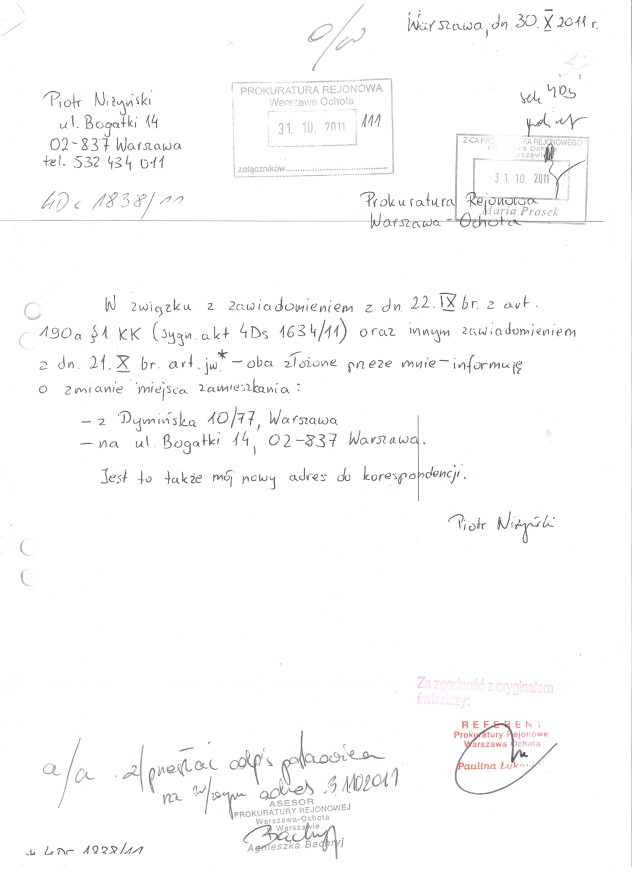 Warszawa, dn. 30. X 2011 r.
o/w
Piotr Niżyński
ul. Bogatki 14
02-837 Warszawa
tel. 532 434 011
4Ds 1838/11
PROKURATURA REJONOWA
Warszawa Ochota
31. 10. 2011
111
załączników
37
sek 4Ds
Z-CA PROKURATORA REJONOWEGO
Warszawa Ochota
w Warszawie
31. 10. 2011
Maria Prasek
Prokuratura Rejonowa
Warszawa-Ochota
W związku z zawiadomieniem z dn. 22. IX br. z art.
190a §1 KK (sygn. akt 4Ds 1634/11) oraz innym zawiadomieniem
z dn. 21. X br. art. jw.* – oba złożone przeze mnie – informuję
o zmianie miejsca zamieszkania:
– z Dymińska 10/77, Warszawa
– na ul. Bogatki 14, 02-837 Warszawa.
Jest to także mój nowy adres do korespondencji.
Piotr Niżyński
Za zgodność z oryginałem
świadczy:
REFERENT
Prokuratury Rejonowej
Warszawa Ochota
Paulina
a/a
przesłać odpis
na w/wym adres 31102011
ASESOR
PROKURATURY REJONOWEJ
Warszawa-Ochota
w Warszawie
Agnieszka Badaryj
* 4Ds 1838/11